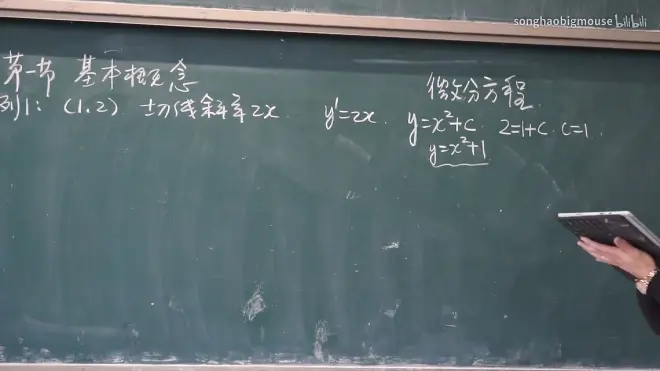 songhaobigmouse bilibili
第一节 基本概念
微分方程.
例1: (1,2) 切线斜率2x. y'=2x. y=x²+c. 2=1+c. c=1.
y=x²+1